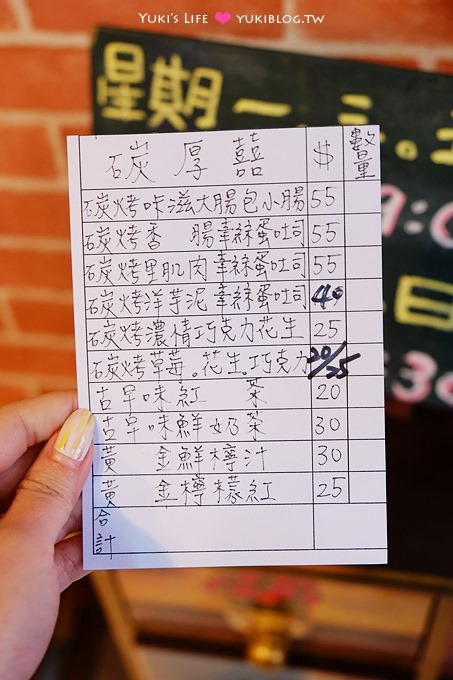 YUKI'S LIFE ❤ YUKIBLOG.TW
星期一.三.
9:0
日
30
碳厚囍 $ 數量
碳烤咔滋大腸包小腸 55
碳烤香腸韋祿蛋吐司 55
碳烤里肌肉韋祿蛋吐司 55
碳烤洋芋泥韋祿蛋吐司 40
碳烤濃情巧克力花生 25
碳烤草莓.花生.巧克力 20/25
古早味紅茶 20
古早味鮮奶茶 30
黃金鮮檸汁 30
黃金檸檬紅 25
合計